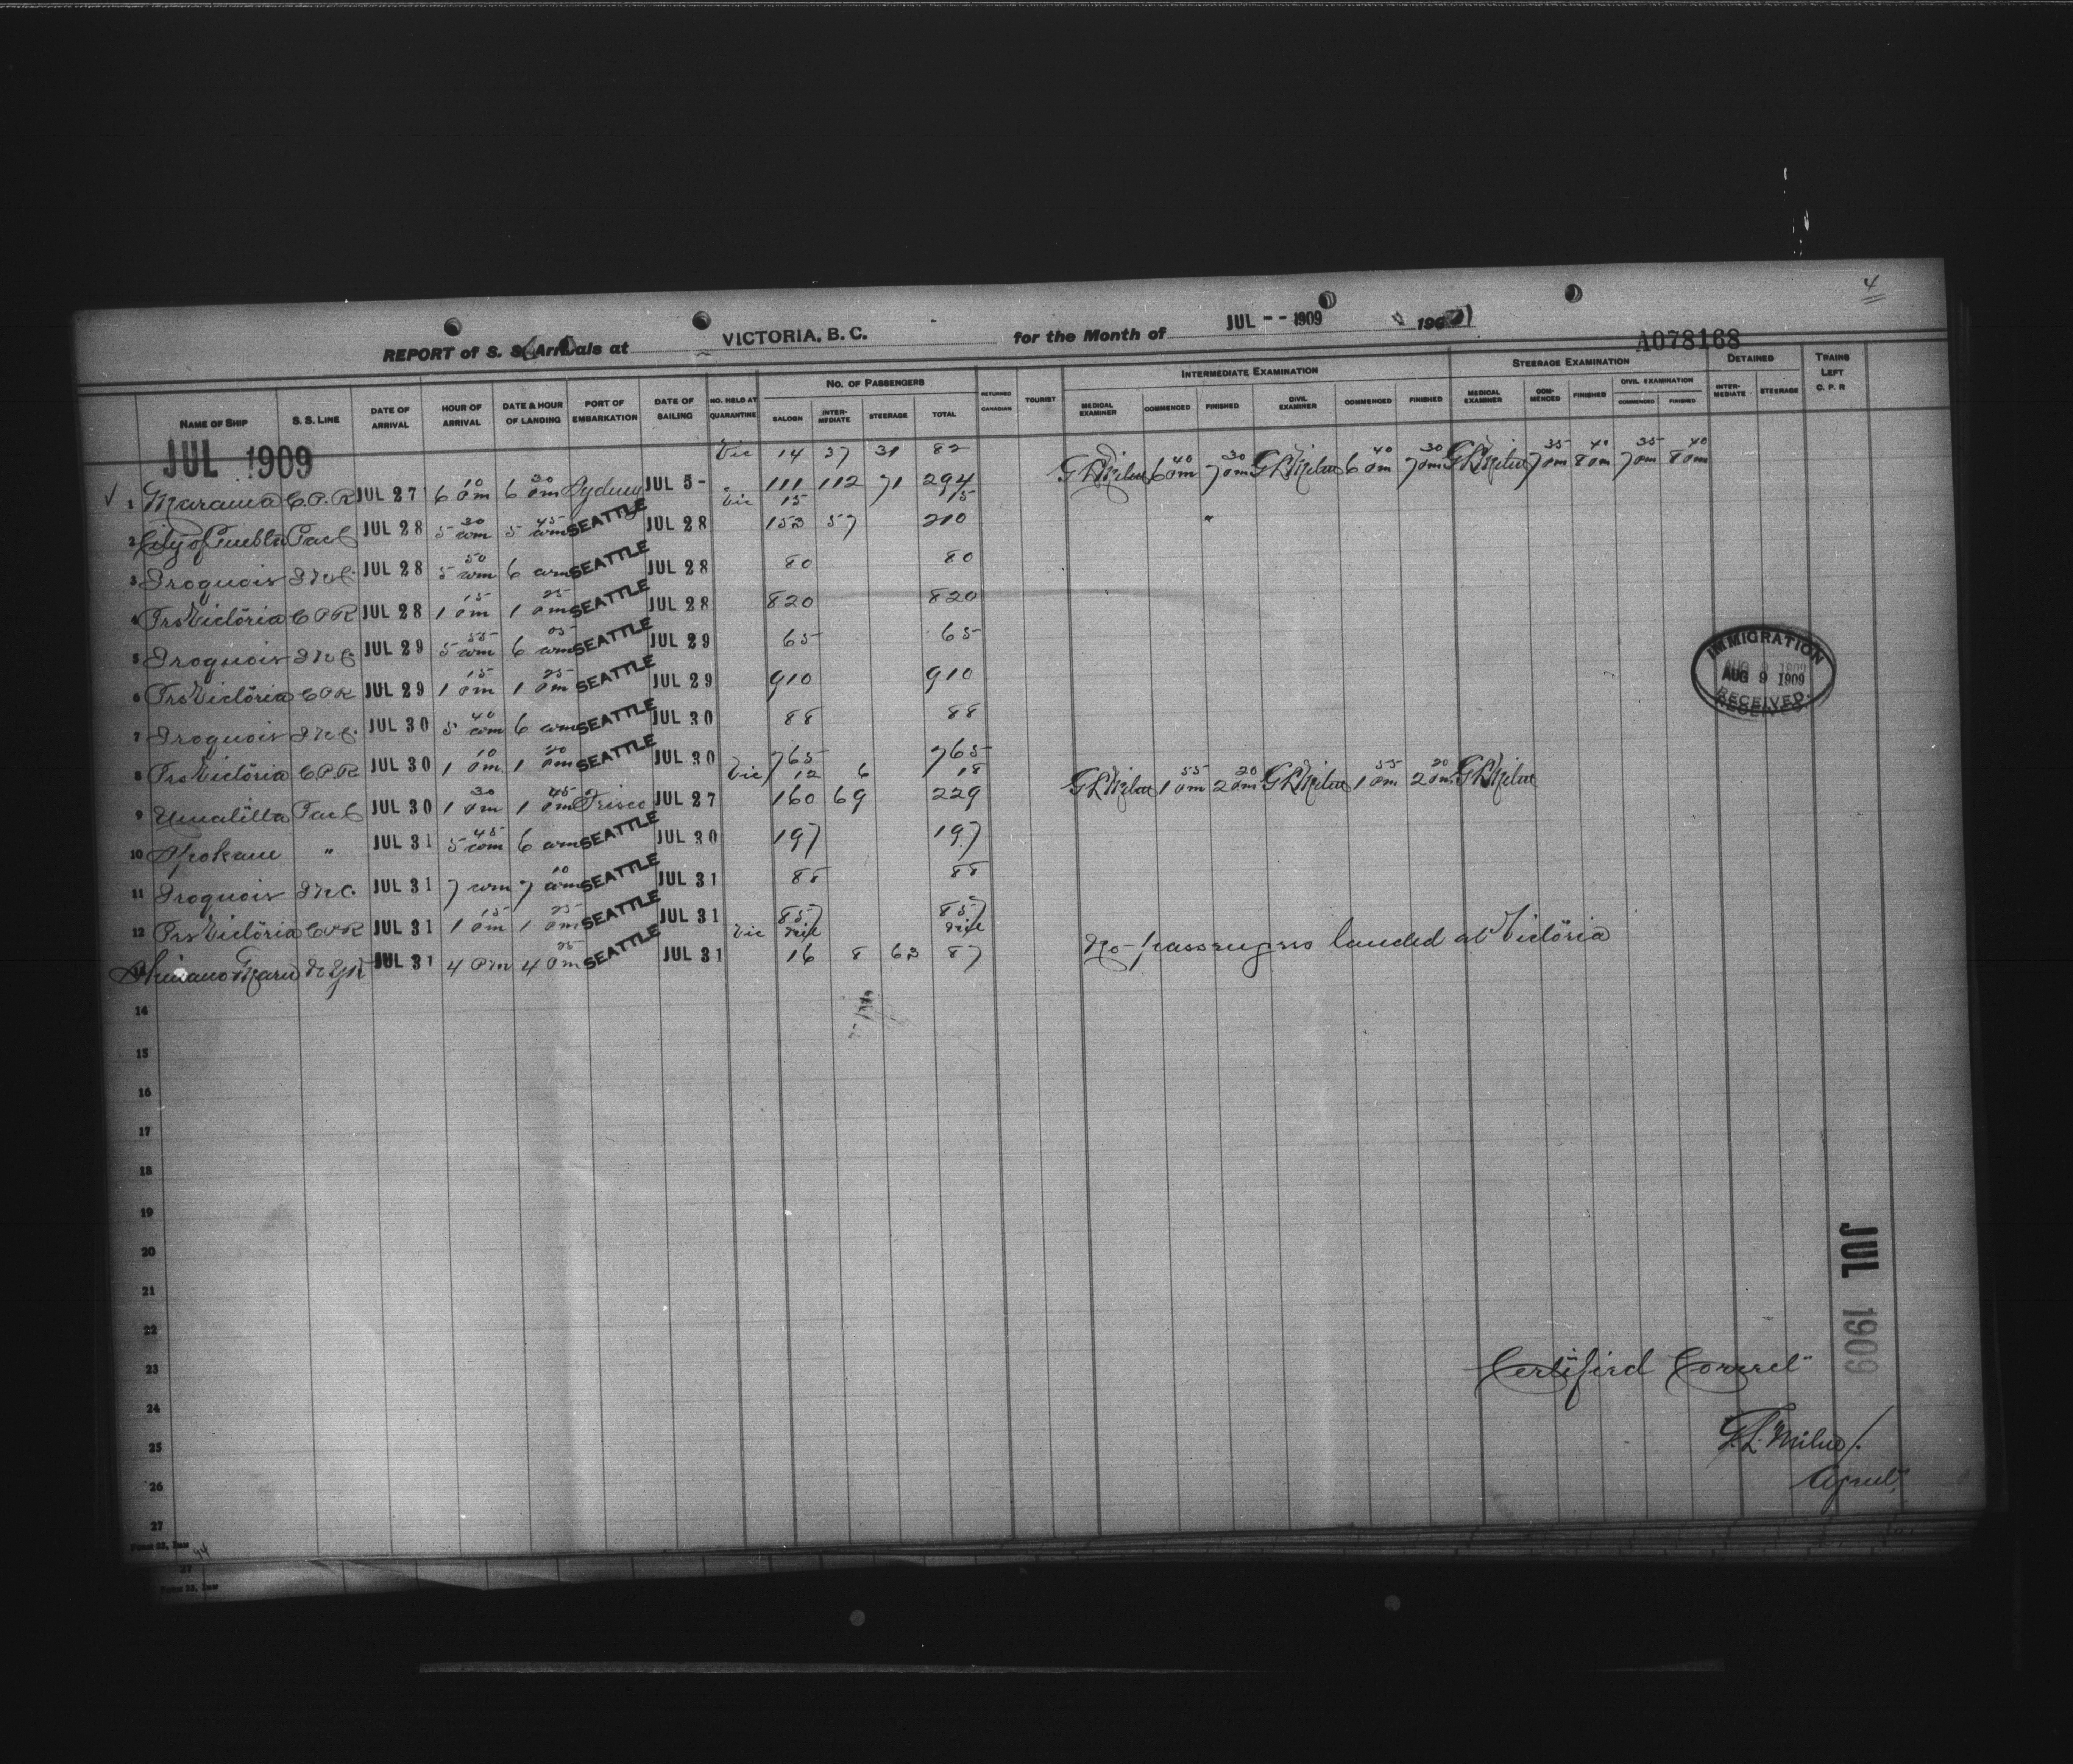 4
REPORT of S. S. Arrivals at VICTORIA, B. C. for the Month of JUL -- 1909 190
A078168
NAME OF SHIP S. S. LINE DATE OF ARRIVAL HOUR OF ARRIVAL DATE & HOUR OF LANDING PORT OF EMBARKATION DATE OF SAILING NO. HELD AT QUARANTINE NO. OF PASSENGERS SALOON INTER-MEDIATE STEERAGE TOTAL RETURNED CANADIAN TOURIST INTERMEDIATE EXAMINATION MEDICAL EXAMINER COMMENCED FINISHED CIVIL EXAMINER COMMENCED FINISHED STEERAGE EXAMINATION MEDICAL EXAMINER COM-MENCED FINISHED CIVIL EXAMINATION COMMENCED FINISHED DETAINED INTER-MEDIATE STEERAGE TRAINS LEFT C. P. R
JUL 1909
Vic 14 37 31 82
1 Marama C.P.R JUL 27 6 10 am 6 30 am Sydney JUL 5- 111 112 71 294 GLMilne 6 40 am 7 30 am GLMilne 6 40 am 7 30 am GLMilne 7 35 am 8 40 am 7 35 am 8 40 am
Vic 15 15
2 City of Puebla Pac C JUL 28 5 30 am 5 45 am SEATTLE JUL 28 153 57 210
3 Iroquois INC JUL 28 5 50 am 6 am SEATTLE JUL 28 80 80
4 Prs Victoria CPR JUL 28 1 15 pm 1 25 pm SEATTLE JUL 28 820 820
5 Iroquois INC JUL 29 5 55 am 6 05 am SEATTLE JUL 29 65 65
6 Prs Victoria CPR JUL 29 1 15 pm 1 25 pm SEATTLE JUL 29 910 910
7 Iroquois INC JUL 30 5 40 am 6 am SEATTLE JUL 30 88 88
8 Prs Victoria C.P.R JUL 30 1 10 pm 1 20 pm SEATTLE JUL 30 765 765
Vic 12 6 18
9 Umatilla Pac C JUL 30 1 30 pm 1 45 pm Frisco JUL 27 160 69 229 GLMilne 1 55 pm 2 20 pm GLMilne 1 55 pm 2 20 pm GLMilne
10 Spokane " JUL 31 5 45 am 6 am SEATTLE JUL 30 197 197
11 Iroquois INC. JUL 31 7 am 7 10 am SEATTLE JUL 31 88 88
12 Prs Victoria CPR JUL 31 1 15 pm 1 25 pm SEATTLE JUL 31 857 857
Vic nil nil
Shinano Maru N Y K JUL 31 4 pm 4 25 pm SEATTLE JUL 31 16 8 63 87 No passengers landed at Victoria
IMMIGRATION
AUG 9 1909
RECEIVED.
14
15
16
17
18
19
20
21
22
23
24
25
26
27
JUL 1909
Certified Correct
G.L. Milne
Agent.
FORM 33, IMM
27
FORM 33, IMM